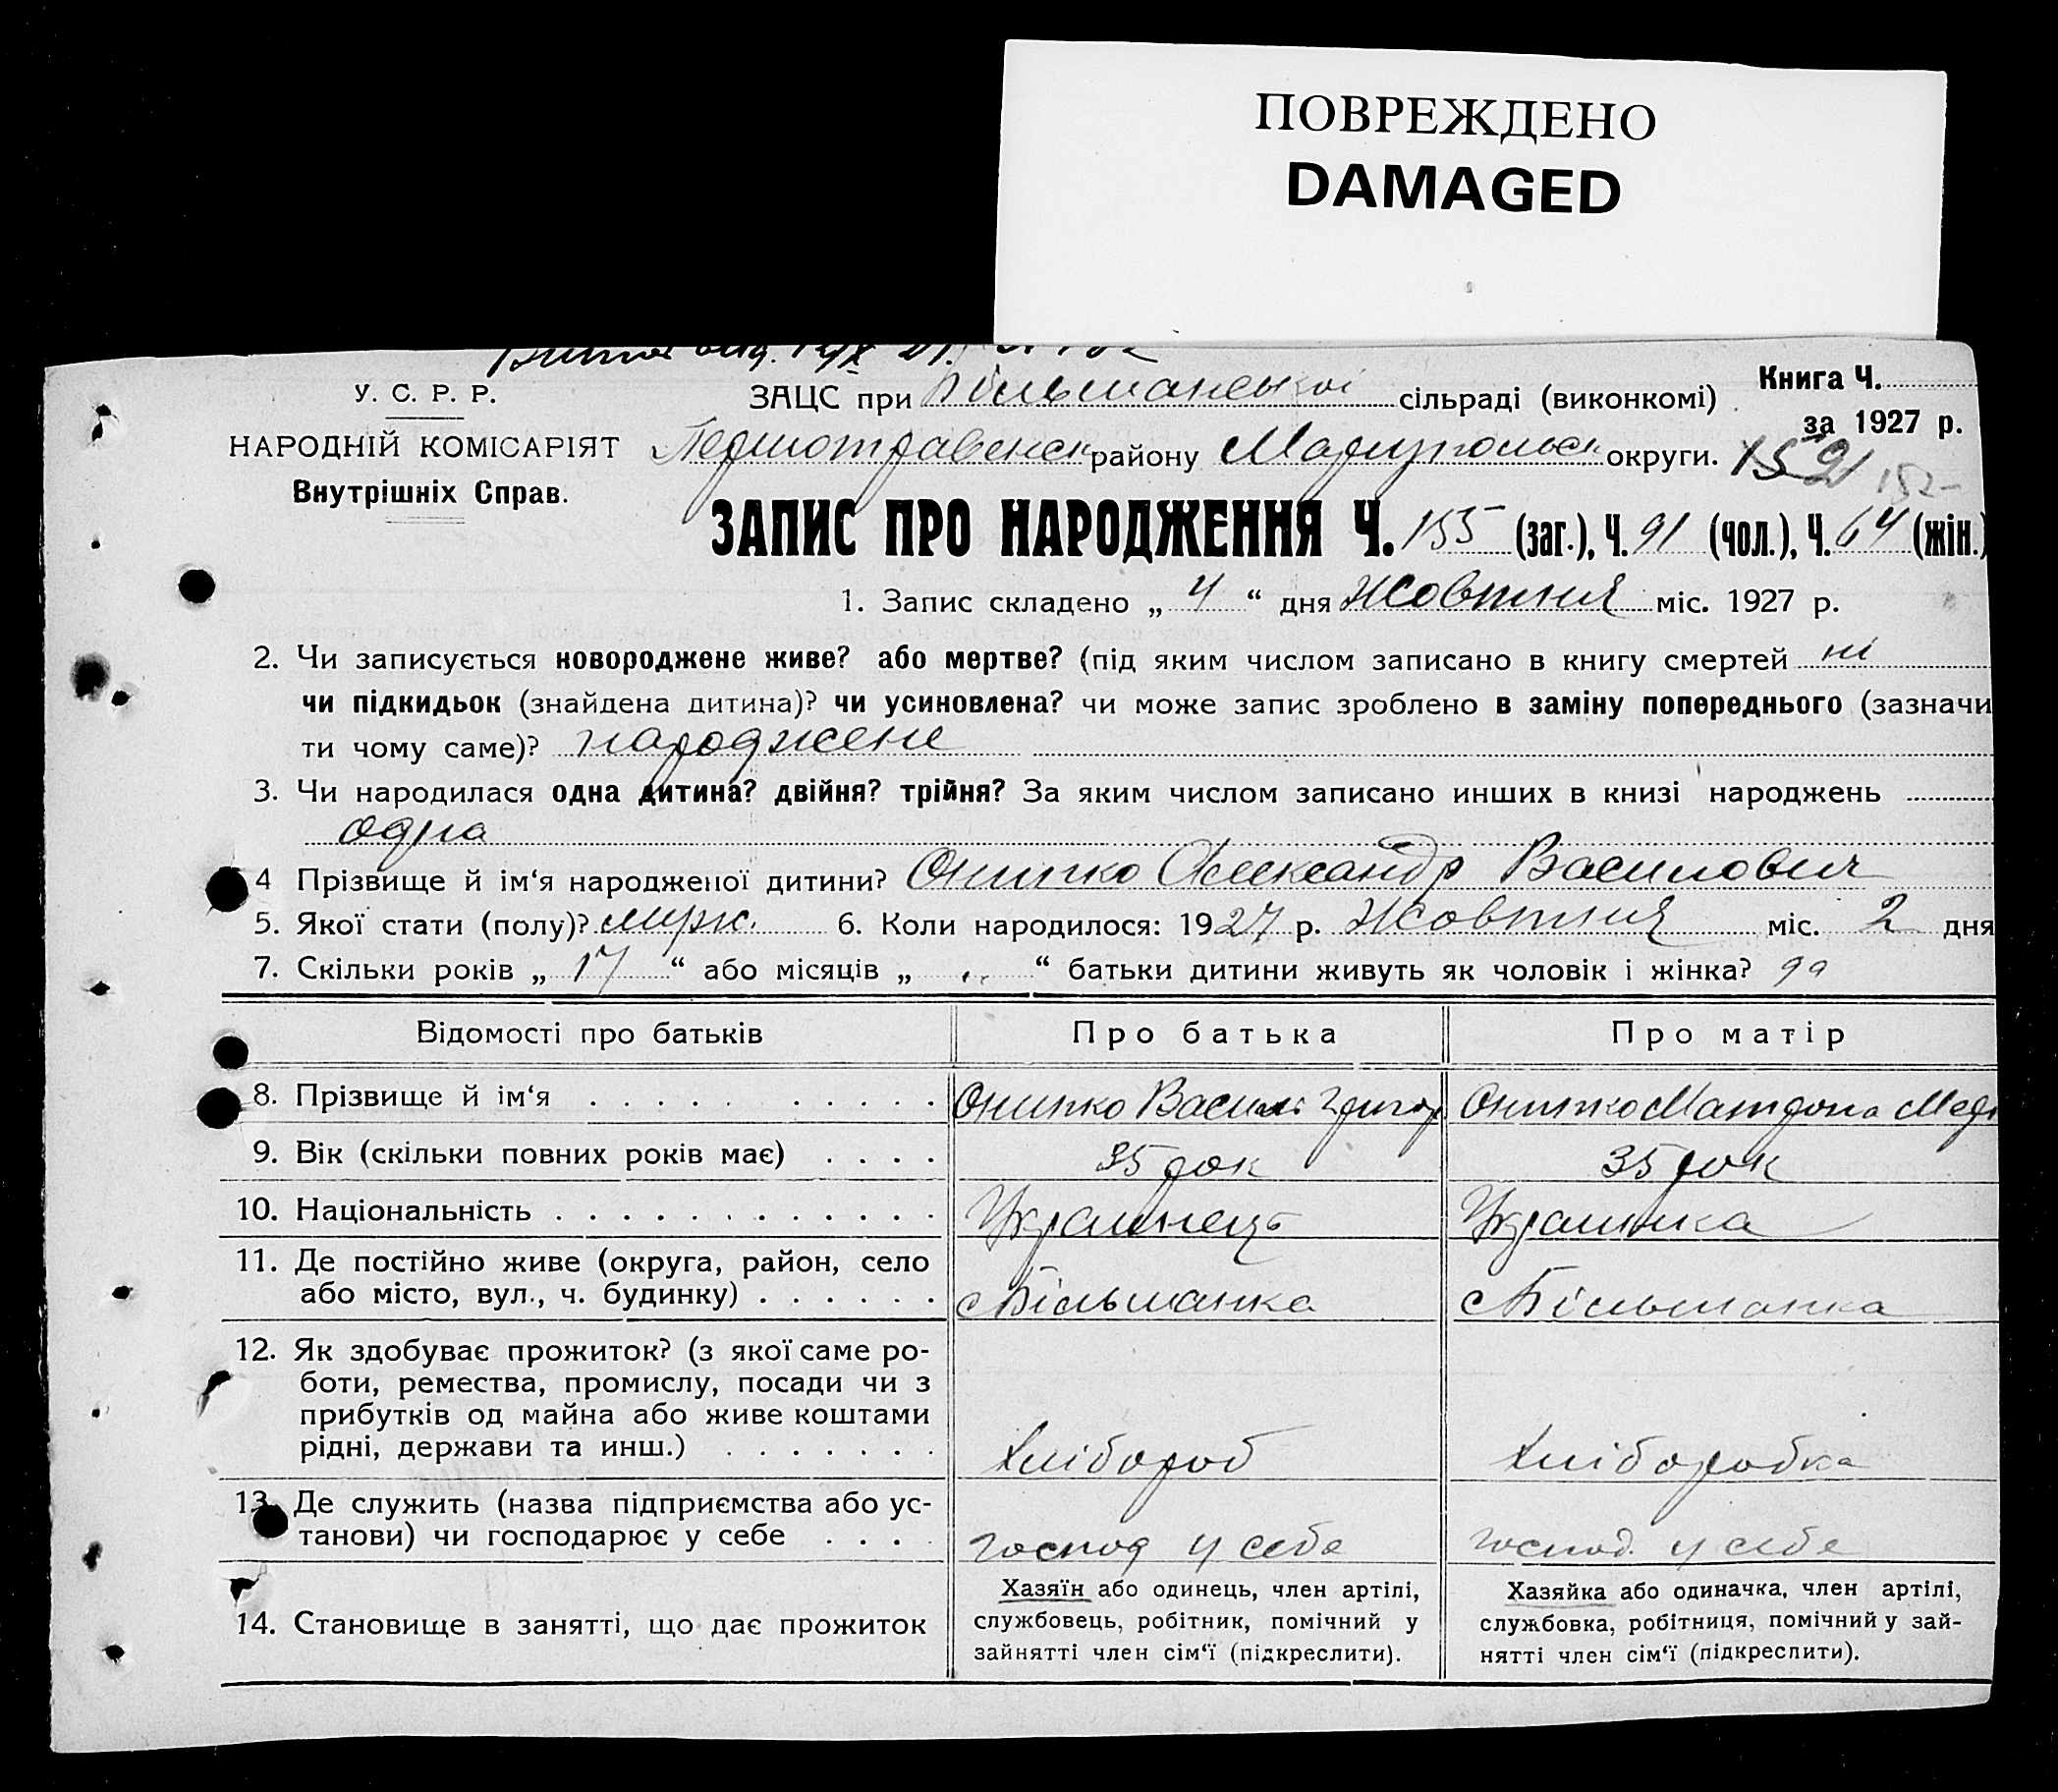 ПОВРЕЖДЕНО
DAMAGED
У. С. Р. Р.
НАРОДНІЙ КОМІСАРІЯТ
Внутрішніх Справ.
ЗАЦС при Більшанської сільраді (виконкомі)
Книга Ч.
за 1927 р.
Першотравенск району Маріупольск округи. 152
152
ЗАПИС ПРО НАРОДЖЕННЯ Ч. 155 (заг.), Ч. 91 (чол.), Ч. 64 (жін.)
1. Запис складено „ 4 “ дня Жовтня міс. 1927 р.
2. Чи записується новороджене живе? або мертве? (під яким числом записано в книгу смертей ні
чи підкидьок (знайдена дитина)? чи усиновлена? чи може запис зроблено в заміну попереднього (зазначи
ти чому саме)? народжене
3. Чи народилася одна дитина? двійня? трійня? За яким числом записано инших в книзі народжень
одна
4 Прізвище й ім‘я народженої дитини? Онипко Олександр Василович
5. Якої стати (полу)? муж. 6. Коли народилося: 1927 р. Жовтня міс. 2 дня
7. Скільки років „ 17 “ або місяців „ “ батьки дитини живуть як чоловік і жінка? да
Відомості про батьків
Про батька
Про матір
8. Прізвище й ім‘я Онипко Василь Григор Онипко Матрона
9. Вік (скільки повних років має) 35 рок 35 рок
10. Національність Украинець Украинка
11. Де постійно живе (округа, район, село
або місто, вул., ч. будинку) с Більшанка с Більшанка
12. Як здобуває прожиток? (з якої саме ро-
боти, ремества, промислу, посади чи з
прибутків од майна або живе коштами
рідні, держави та инш.) Хлібороб Хліборобка
13. Де служить (назва підприємства або ус-
танови) чи господарює у себе господ у себе господ. у себе
14. Становище в занятті, що дає прожиток
Хазяїн або одинець, член артілі,
службовець, робітник, помічний у
зайнятті член сім‘ї (підкреслити).
Хазяйка або одиначка, член артілі,
службовка, робітниця, помічний у зай-
нятті член сім‘ї (підкреслити).